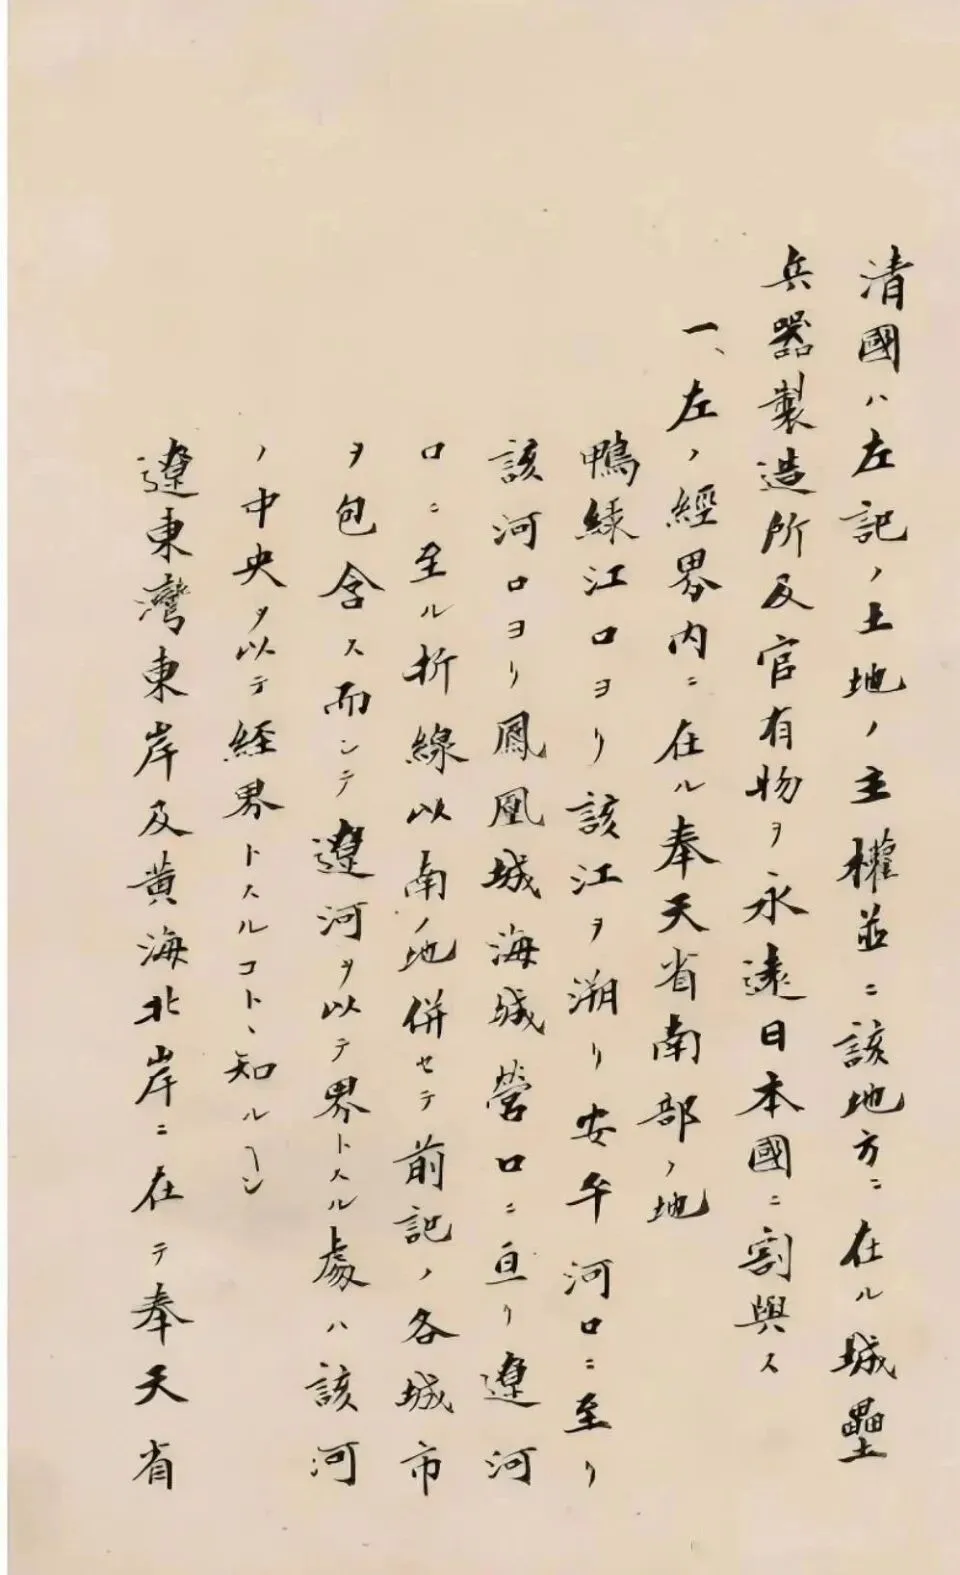 清國ハ左記ノ土地ノ主權並ニ該地方ニ在ル城壘
兵器製造所及官有物ヲ永遠日本國ニ割與ス
一、左ノ經界内ニ在ル奉天省南部ノ地
鴨緑江口ヨリ該江ヲ溯リ安平河口ニ至リ
該河口ヨリ鳳凰城海城營口ニ亘リ遼河
口ニ至ル折線以南ノ地併セテ前記ノ各城市
ヲ包含ス而シテ遼河ヲ以テ界トスル處ハ該河
ノ中央ヲ以テ経界トスルコトヽ知ルヘシ
遼東灣東岸及黄海北岸ニ在テ奉天省